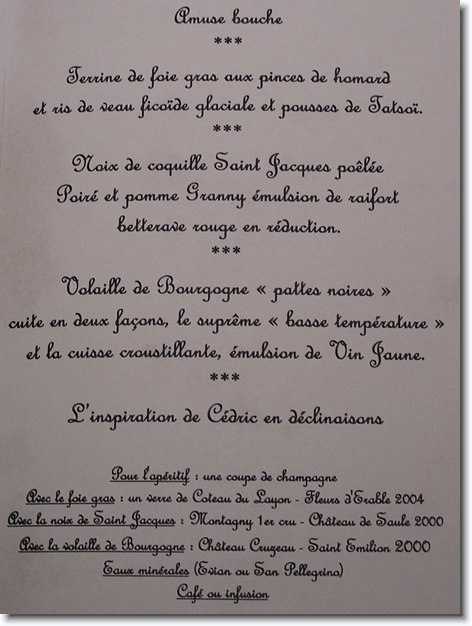 Amuse bouche
***
Terrine de foie gras aux pinces de homard
et ris de veau ficoïde glaciale et pousses de Tatsoï.
***
Noix de coquille Saint Jacques poêlée
Poiré et pomme Granny émulsion de raifort
betterave rouge en réduction.
***
Volaille de Bourgogne « pattes noires »
cuite en deux façons, le suprême « basse température »
et la cuisse croustillante, émulsion de Vin Jaune.
***
L'inspiration de Cédric en déclinaisons
Pour l'apéritif : une coupe de champagne
Avec le foie gras : un verre de Coteau du Layon - Fleurs d'Erable 2004
Avec la noix de Saint Jacques : Montagny 1er cru - Château de Saule 2000
Avec la volaille de Bourgogne : Château Cruzeau - Saint Emilion 2000
Eaux minérales (Evian ou San Pellegrino)
Café ou infusion